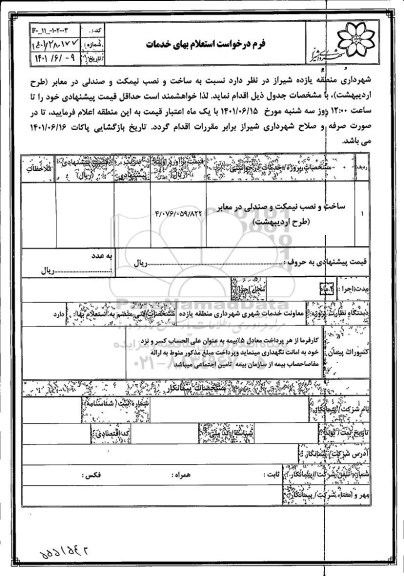 فرم درخواست استعلام بهای خدمات
کد:
شماره:
تاریخ: ۱۴۰۱/۶/۰۹
شهرداری منطقه یازده شیراز در نظر دارد نسبت به ساخت و نصب نیمکت و صندلی در معابر (طرح
اردیبهشت)، با مشخصات جدول ذیل اقدام نماید. لذا خواهشمند است حداقل قیمت پیشنهادی خود را تا
ساعت ۱۲:۰۰ روز سه شنبه مورخ ۱۴۰۱/۰۶/۱۵ با یک ماه اعتبار قیمت به این منطقه اعلام فرمایید، تا در
صورت صرفه و صلاح شهرداری شیراز برابر مقررات اقدام گردد. تاریخ بازگشایی پاکات ۱۴۰۱/۰۶/۱۶
می باشد.
ردیف مشخصات پروژه / خدمات درخواستی ملاحظات
۱ ساخت و نصب نیمکت و صندلی در معابر ۴/۰۷۶/۰۵۹/۸۲۲
(طرح اردیبهشت)
قیمت پیشنهادی به حروف: ریال به عدد
ریال
مدت اجرا: محل اجرا:
دستگاه نظارت پروژه: معاونت خدمات شهری شهرداری منطقه یازده مشخصات فنی منضم به استعلام بها: دارد
کسورات پیمان: کارفرما از هر پرداخت معادل ۵٪ بیمه به عنوان علی الحساب کسر و نزد
خود به امانت نگهداری مینماید و پرداخت مبلغ مذکور منوط به ارائه
مفاصاحساب بیمه از سازمان بیمه تامین اجتماعی میباشد
مشخصات پیمانکار
نام شرکت / پیمانکار: شماره ثبت (شناسنامه):
تاریخ ثبت / تولد: کد اقتصادی:
آدرس شرکت / پیمانکار:
شماره تلفن شرکت / پیمانکار: ثابت: همراه: فکس:
مهر و امضاء شرکت / پیمانکار: